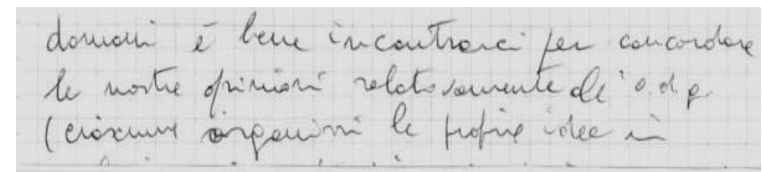 domani è bene incontrarci per concordare
le nostre opinioni relativamente all'o.d.g.
(ciascuno organizzi le proprie idee in